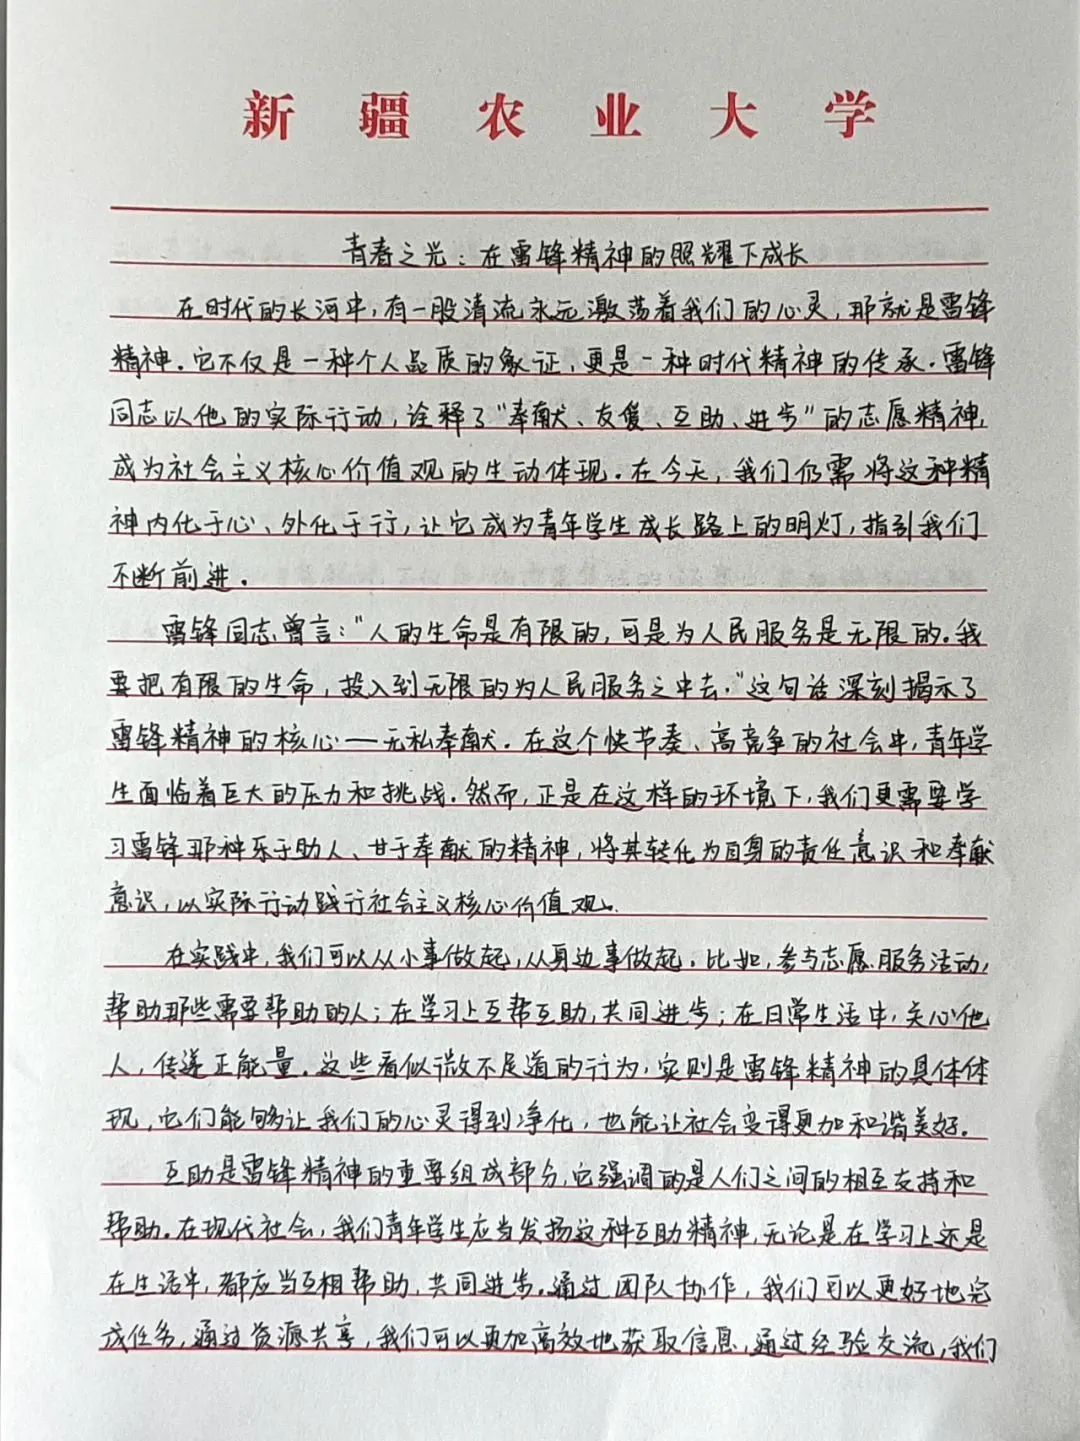 新疆农业大学
青春之光：在雷锋精神的照耀下成长
在时代的长河中，有一股清流永远激荡着我们的心灵，那就是雷锋
精神。它不仅是一种个人品质的象证，更是一种时代精神的传承。雷锋
同志以他的实际行动，诠释了“奉献、友爱、互助、进步”的志愿精神，
成为社会主义核心价值观的生动体现。在今天，我们仍需将这种精
神内化于心、外化于行，让它成为青年学生成长路上的明灯，指引我们
不断前进。
雷锋同志曾言：“人的生命是有限的，可是为人民服务是无限的。我
要把有限的生命，投入到无限的为人民服务之中去。”这句话深刻揭示了
雷锋精神的核心——无私奉献。在这个快节奏、高竞争的社会中，青年学
生面临着巨大的压力和挑战。然而，正是在这样的环境下，我们更需要学
习雷锋那种乐于助人、甘于奉献的精神，将其转化为自身的责任意识和奉献
意识，以实际行动践行社会主义核心价值观。
在实践中，我们可以从小事做起，从身边事做起。比如，参与志愿服务活动，
帮助那些需要帮助的人；在学习上互帮互助，共同进步；在日常生活中，关心他
人，传递正能量。这些看似微不足道的行为，实则是雷锋精神的具体体
现，它们能够让我们的心灵得到净化，也能让社会变得更加和谐美好。
互助是雷锋精神的重要组成部分，它强调的是人们之间的相互支持和
帮助。在现代社会，我们青年学生应当发扬这种互助精神，无论是在学习上还是
在生活中，都应当互相帮助，共同进步。通过团队协作，我们可以更好地完
成任务，通过资源共享，我们可以更加高效地获取信息，通过经验交流，我们